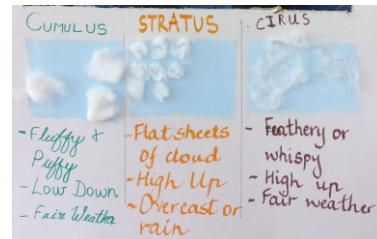 CUMULUS
- Fluffy &
Puffy
- Low Down
- Fair Weather
STRATUS
- Flat sheets
of cloud
- High Up
- Overcast or
rain
CIRUS
- Feathery or
whispy
- High up
- Fair weather